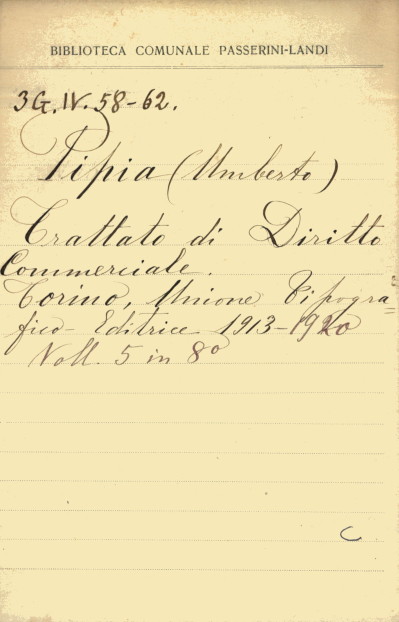 BIBLIOTECA COMUNALE PASSERINI-LANDI
3G.IV.58-62.
Pipia (Umberto)
Trattato di Diritto
Commerciale.
Torino, Unione Tipogra=
fico-Editrice 1913-1920
Voll. 5 in 8º
C